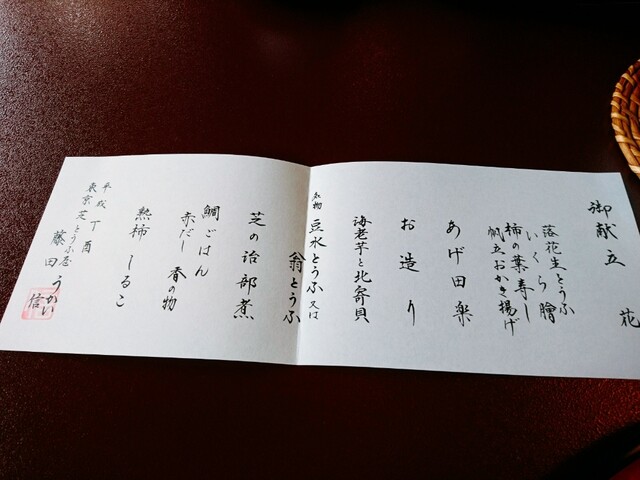 御献立 花
落花生とうふ
いくら膾
柿の葉寿し
帆立おかき揚げ
あげ田楽
お造り
海老芋と北寄貝
名物 豆水とうふ 又は
翁とうふ
芝の治部煮
鯛ごはん
赤だし 香の物
熟柿 しるこ
平成丁酉
東京 芝 とうふ屋 うかい
藤田 信